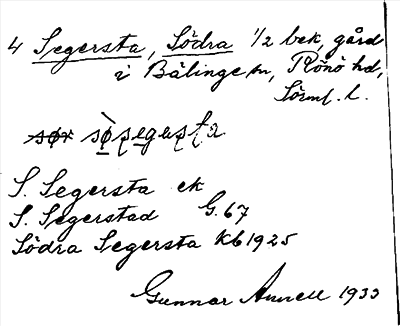 4 Segersta, Södra 1/2 bek, gård
i Bälinge sn, Rönö hd,
Sörml. l.
S. Segersta ek
S. Segerstad G. 67
Södra Segersta Kb 1925
Gunnar Annell 1933